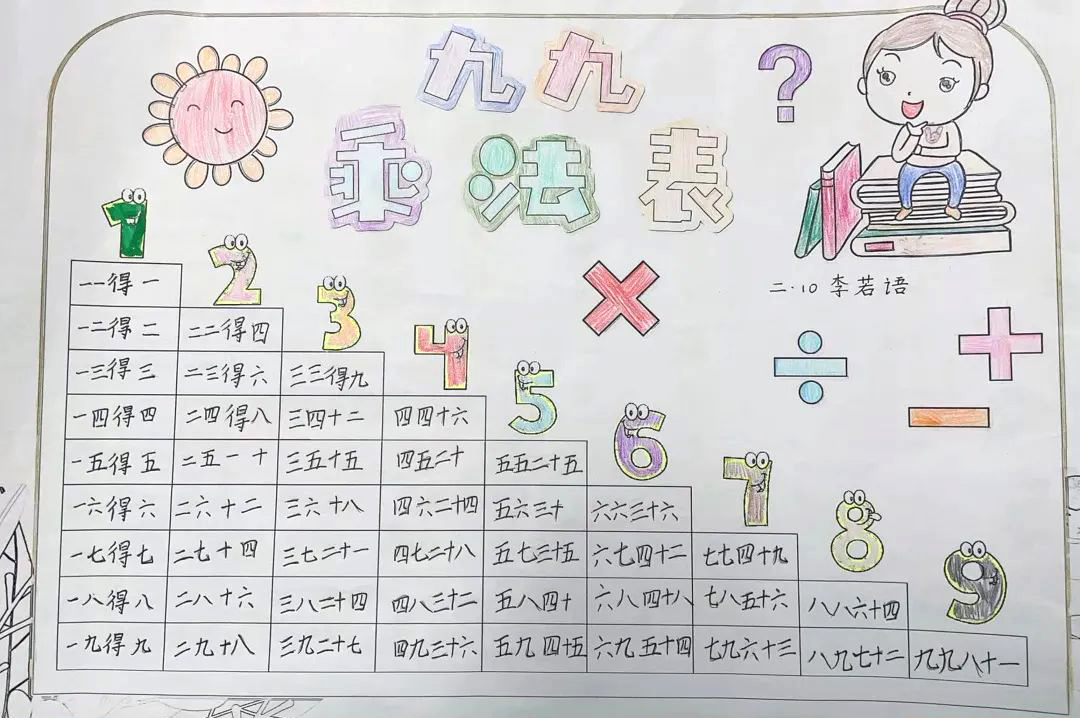 九九
?
乘法表
1
2
3
4
5
6
7
8
9
×
二·10 李若语
÷
+
-
一一得一
一二得二 二二得四
一三得三 二三得六 三三得九
一四得四 二四得八 三四十二 四四十六
一五得五 二五一十 三五十五 四五二十 五五二十五
一六得六 二六十二 三六十八 四六二十四 五六三十 六六三十六
一七得七 二七十四 三七二十一 四七二十八 五七三十五 六七四十二 七七四十九
一八得八 二八十六 三八二十四 四八三十二 五八四十 六八四十八 七八五十六 八八六十四
一九得九 二九十八 三九二十七 四九三十六 五九四十五 六九五十四 七九六十三 八九七十二 九九八十一